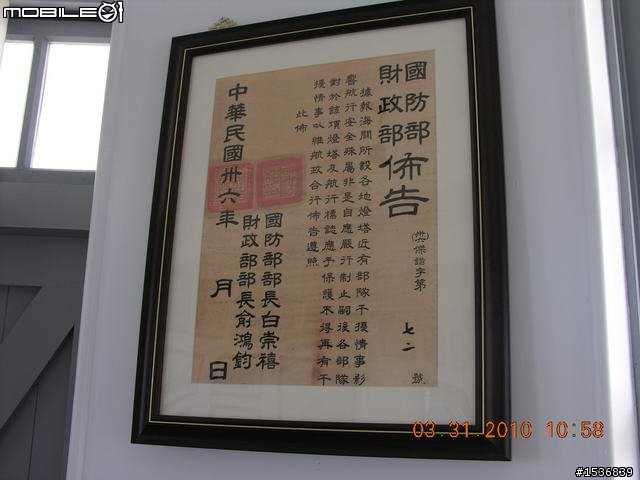 MOBILE01
國防部
財政部
佈告
(卅六)傑諧字第 七二 號
據報海關所設各地燈塔近有部隊干擾情事影
響航行安全殊屬非是自應嚴行制止嗣後各部隊
對於該項燈塔及航行標誌應予保護不得再有干
擾情事以維航政合行佈告遵照
此佈
國防部部長白崇禧
財政部部長俞鴻鈞
中華民國卅六年 月 日
03.31.2010 10:58
#1536839